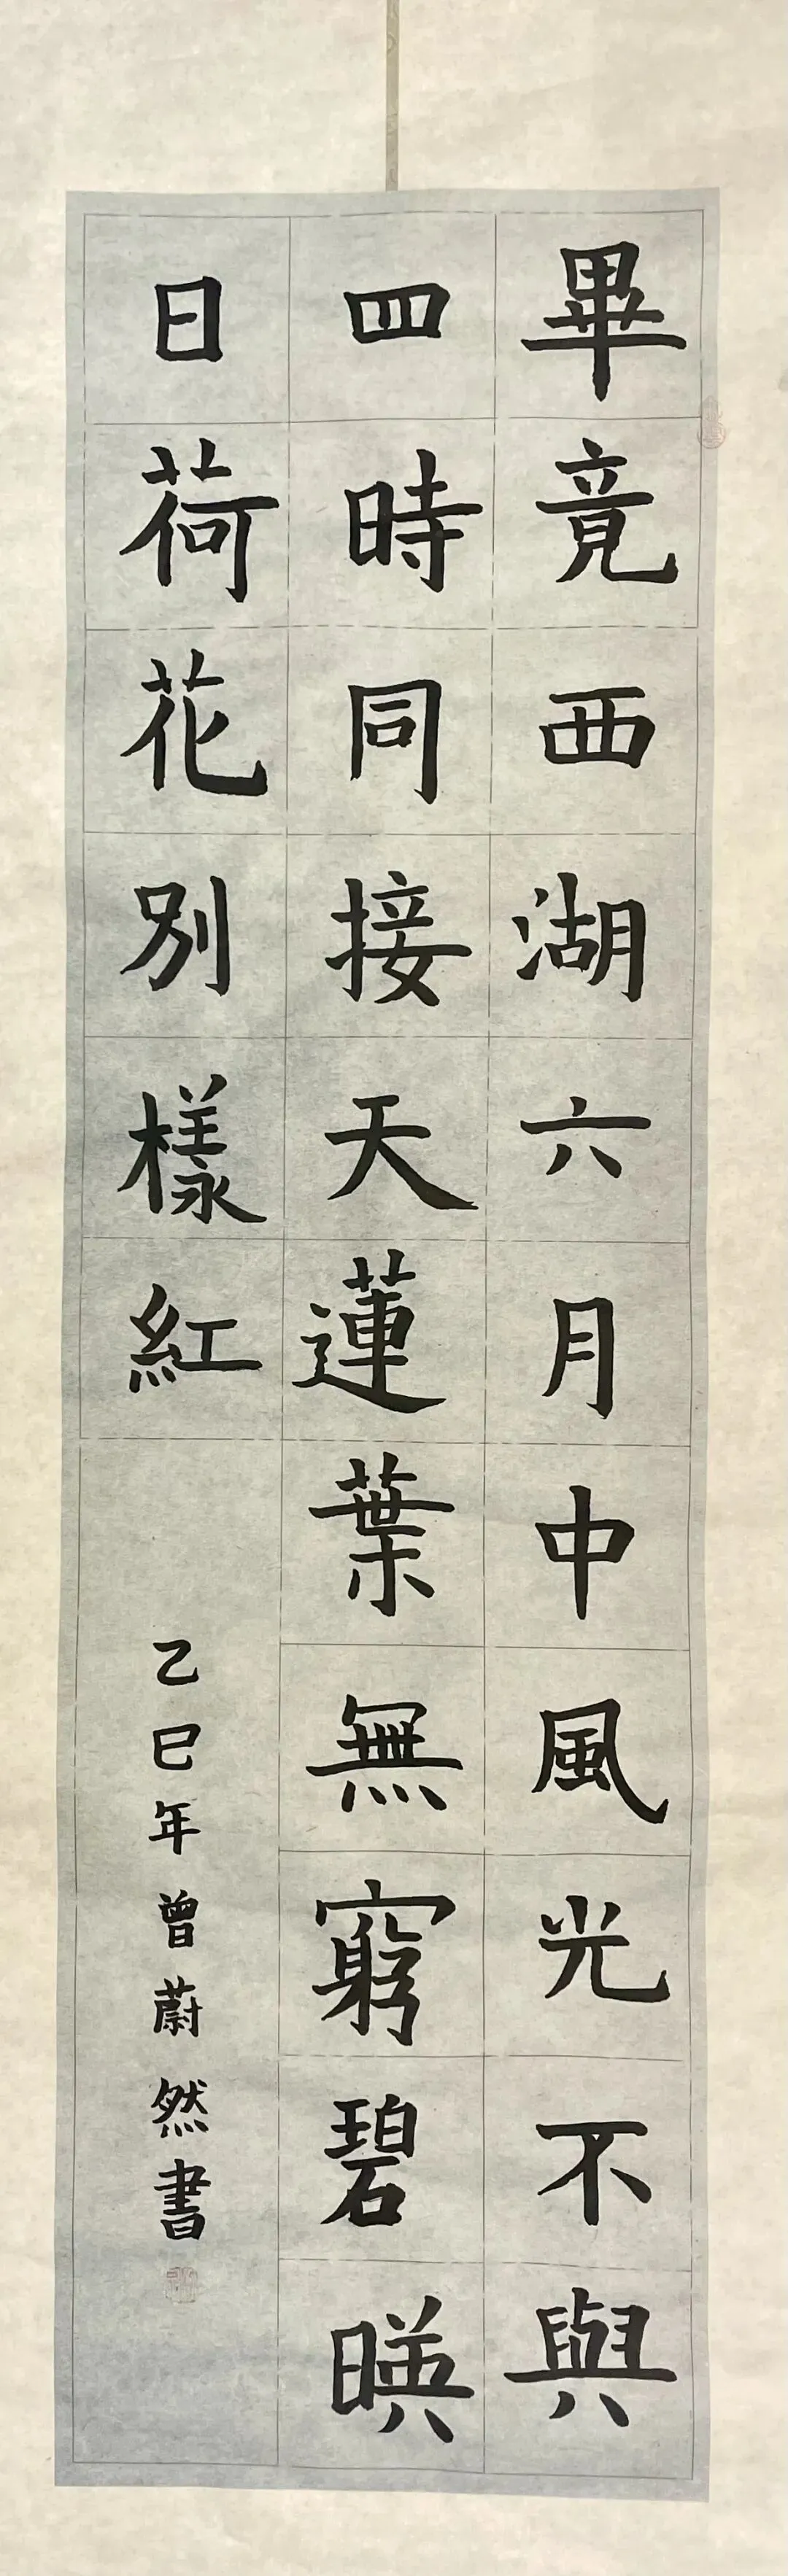 畢竟西湖六月中風光不與
四時同接天蓮葉無窮碧暎
日荷花別樣紅
乙巳年曾蔚然書